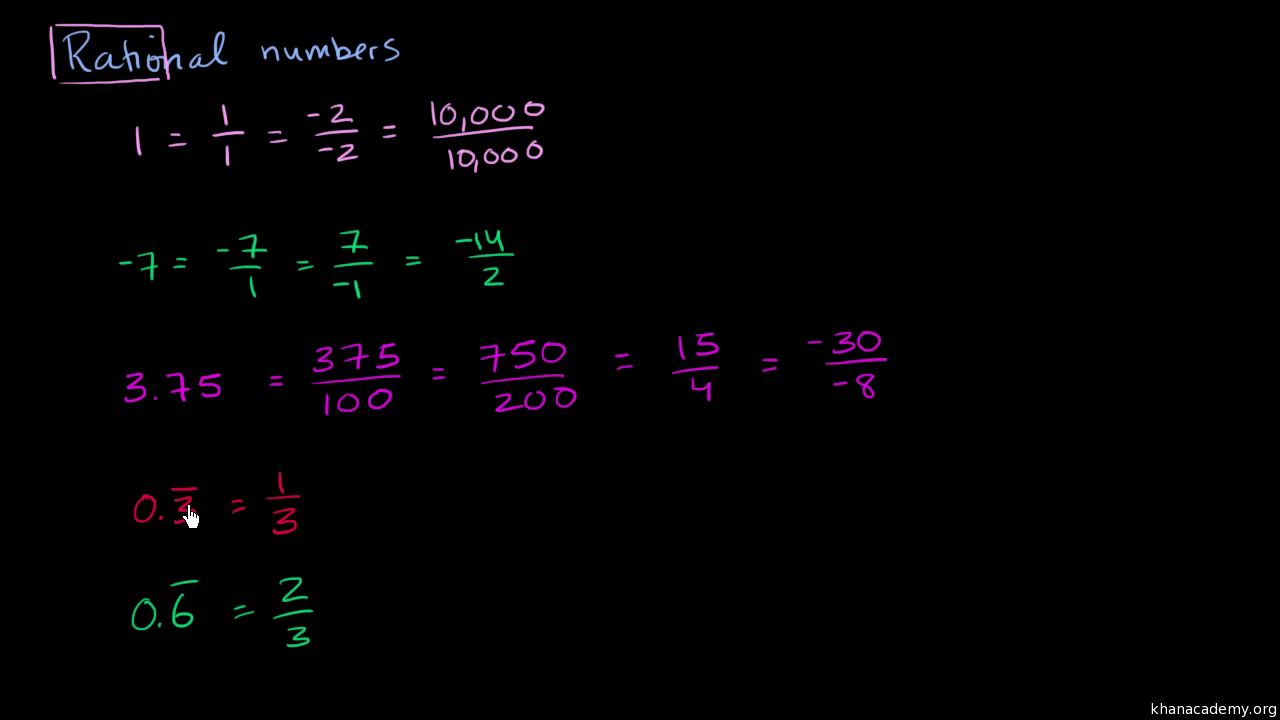 Rational numbers
1 = 1/1 = -2/-2 = 10,000/10,000
-7 = -7/1 = 7/-1 = -14/2
3.75 = 375/100 = 750/200 = 15/4 = -30/-8
0.3̅ = 1/3
0.6̅ = 2/3
khanacademy.org